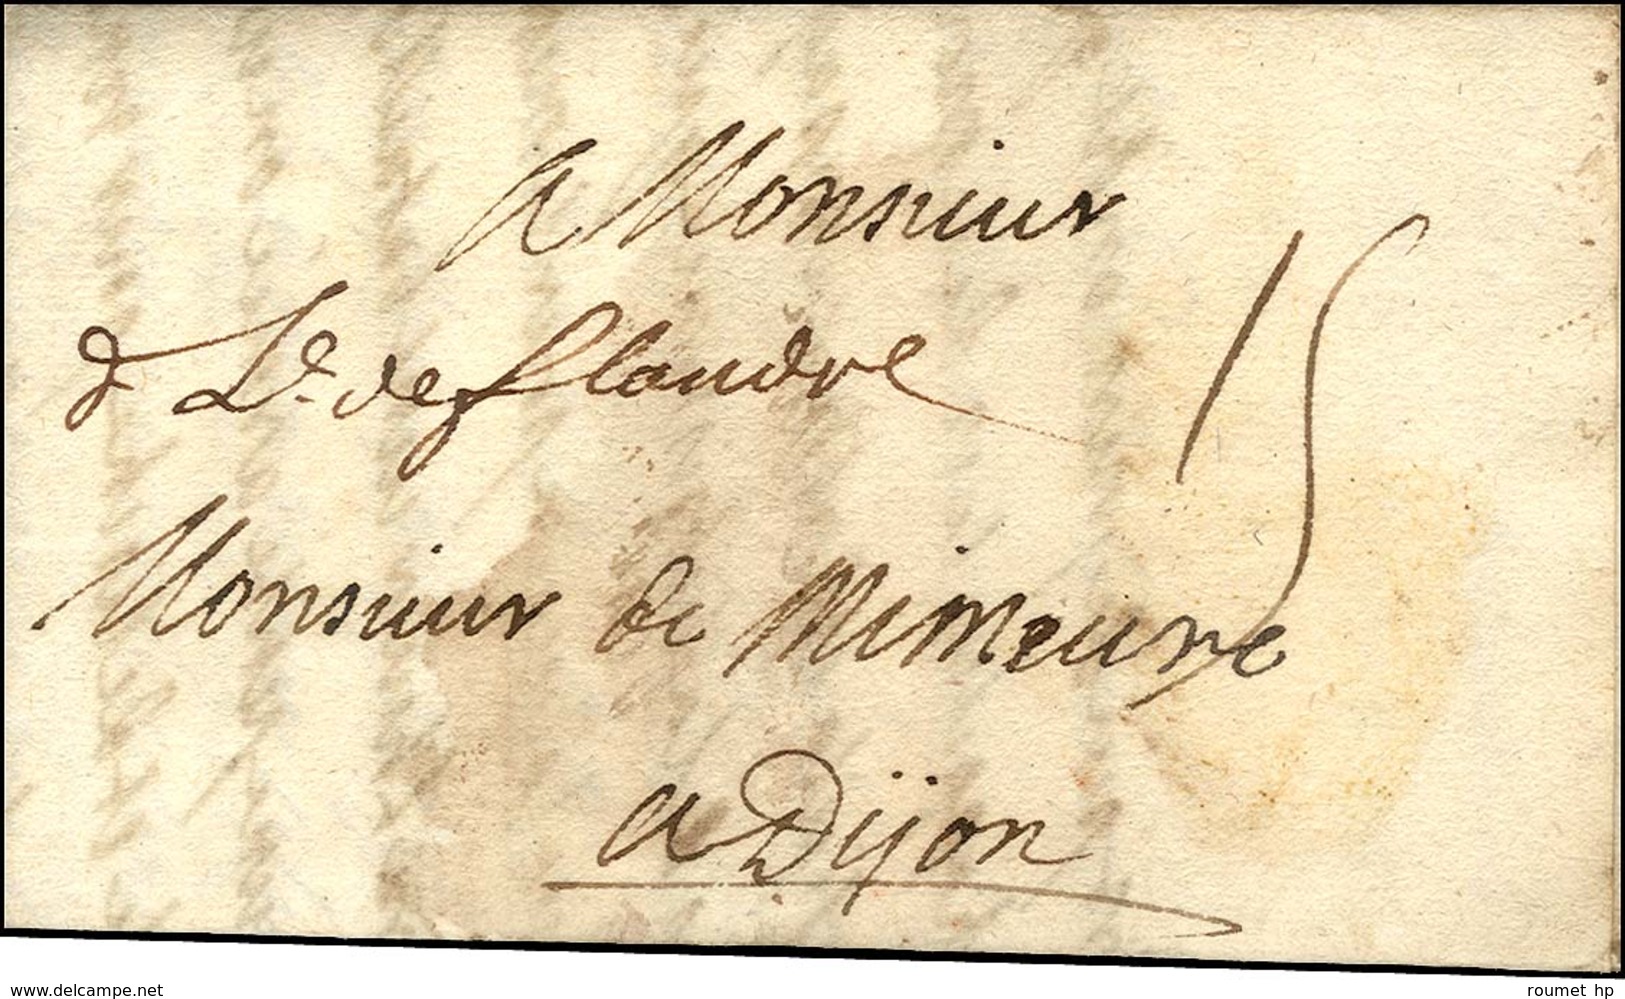 a Monsieur
15
d L.e de flandre
Monsieur de Mimeure
a Dijon
www.delcampe.net
roumet hp